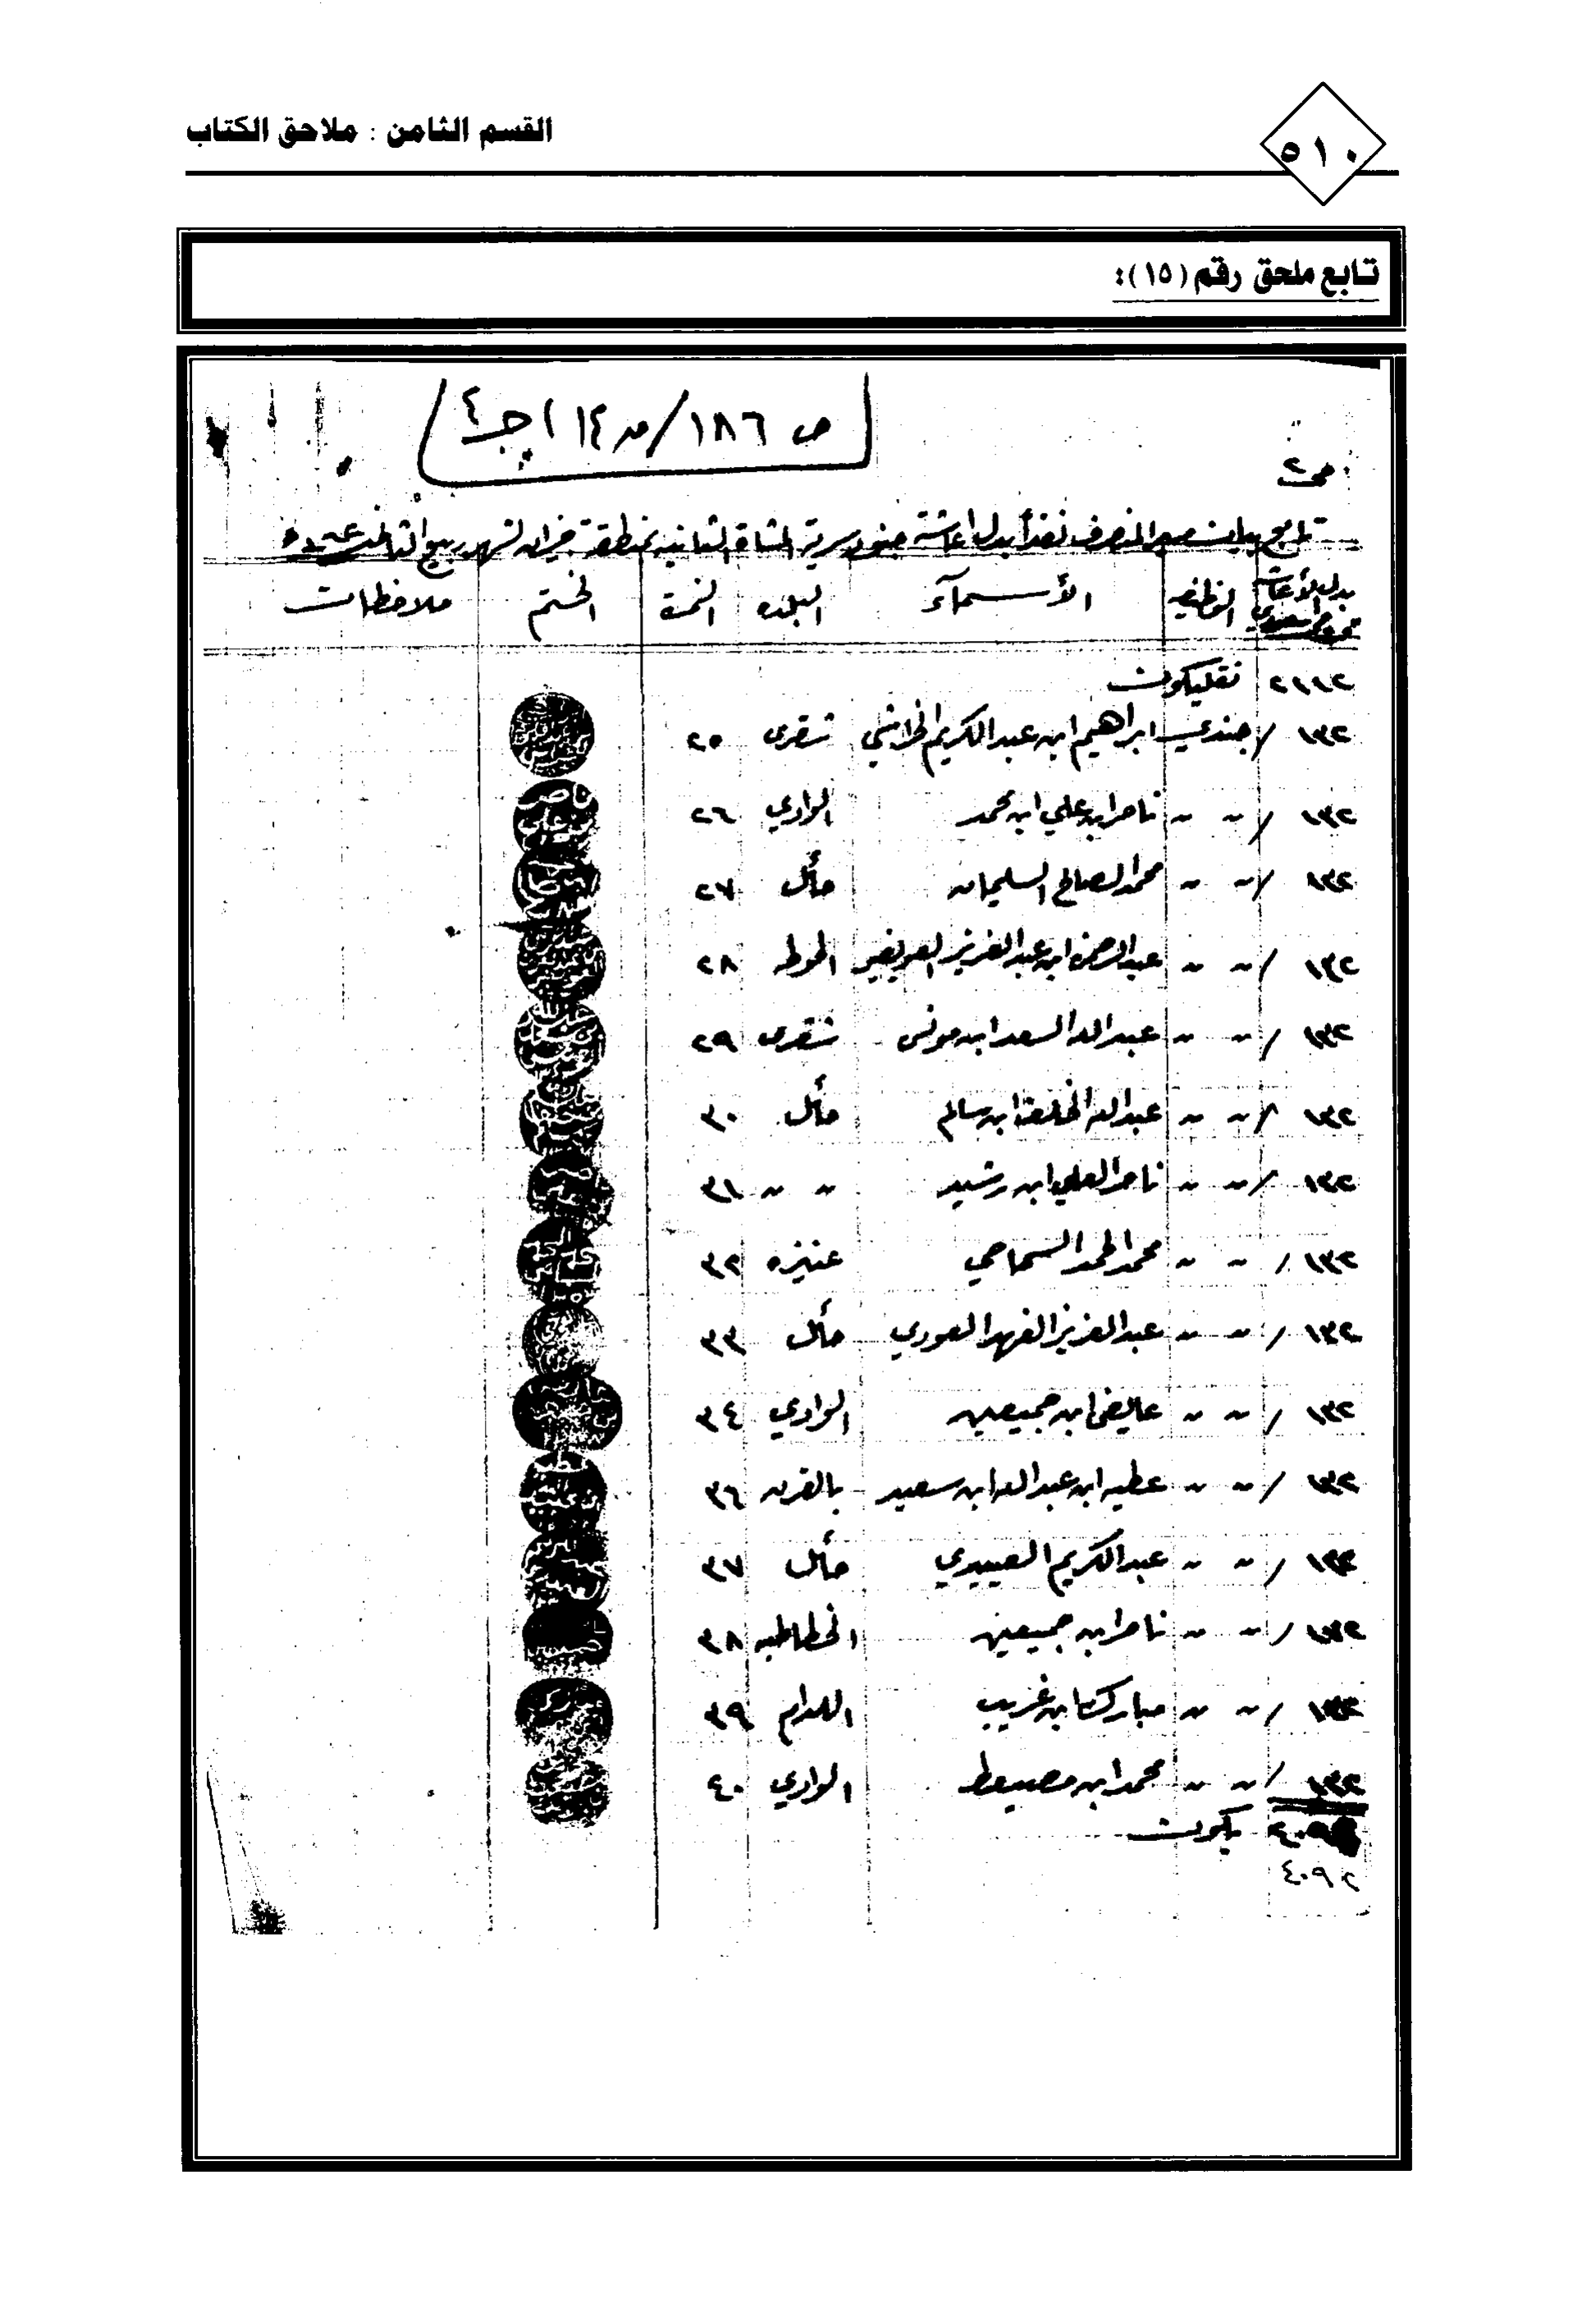 القسم الثامن : ملاحق الكتاب
٥١٠
تابع ملحق رقم (١٥):
ص ١٨٦/م ١٤) جـ٤
ص٢
تابع بيان صـ المنصرف نقداً بدل اعاشة جنود سرية المشاة الثانيه بمنطقة جيزان لشهر ربيع الثاني
بدل الأعاشه الوظيفه الأسماء البلده النمرة الختم ملاحظات
٢١١٢ نقليكون
١٣٢ / جندي ابراهيم ابن عبدالكريم الخراشي شقرى ٢٥
١٣٢ / " " ناصر ابن علي ابن محمد الوادي ٢٦
١٣٢ / " " محمد الصالح السليمان حائل ٢٧
١٣٢ / " " عبدالرحمن ابن عبدالعزيز العويضي الحوطه ٢٨
١٣٢ / " " عبدالله السعد ابن مونس شقرى ٢٩
١٣٢ / " " عبدالله الخليفة ابن سالم حائل ٣٠
١٣٢ / " " ناصر العلي ابن رشيد " " ٣١
١٣٢ / " " محمد الحمد السماحي عنيزه ٣٢
١٣٢ / " " عبدالعزيز الفهد العودي حائل ٣٣
١٣٢ / " " عايض ابن جميعين الوادي ٣٤
١٣٢ / " " عطيه ابن عبدالله ابن سعيد بالقرن ٣٦
١٣٢ / " " عبدالكريم العبيدي حائل ٣٧
١٣٢ / " " ناصر ابن جميعين الخطاطبه ٣٨
١٣٢ / " " مبارك ابن غريب اللدام ٣٩
١٣٢ / " " محمد ابن مصيعط الوادي ٤٠
يكون
٤٠٩٢